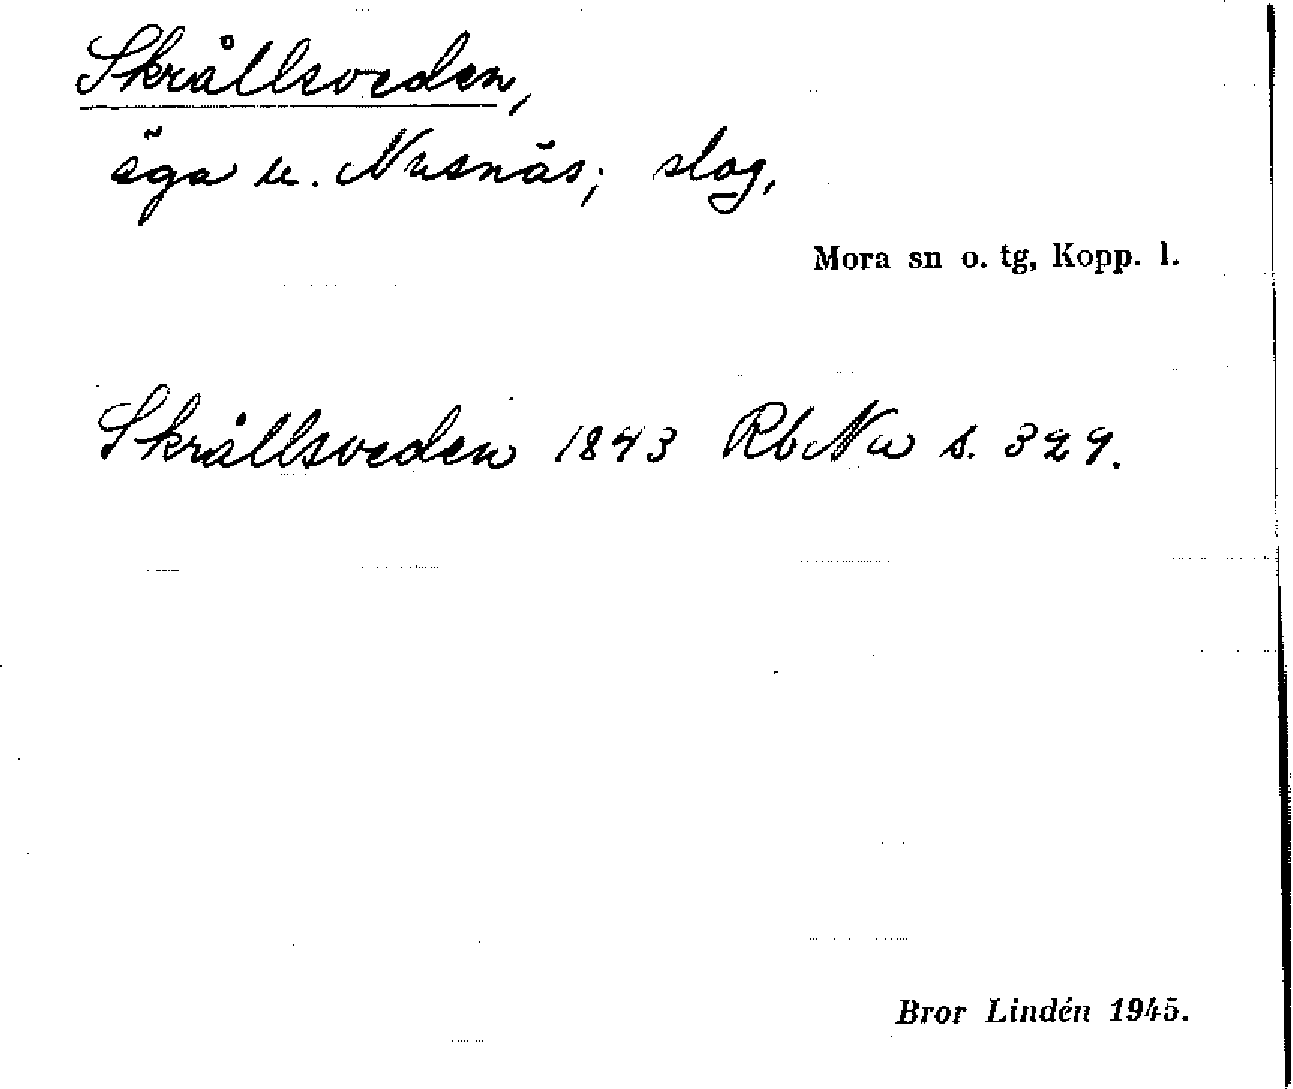 Skrållsveden,
äga u. Nusnäs; slog,
Mora sn o. tg, Kopp. l.
Skrållsveden 1843 RbNu s. 329.
Bror Lindén 1945.